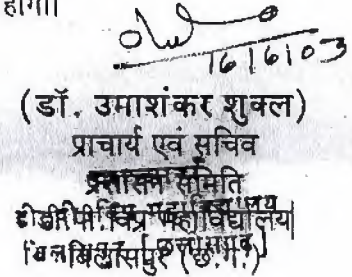 होगा।
16/6/03
(डॉ. उमाशंकर शुक्ल)
प्राचार्य एवं सचिव
प्रशासन समिति
डी.पी. विप्र महाविद्यालय
बिलासपुर (छ.ग.)